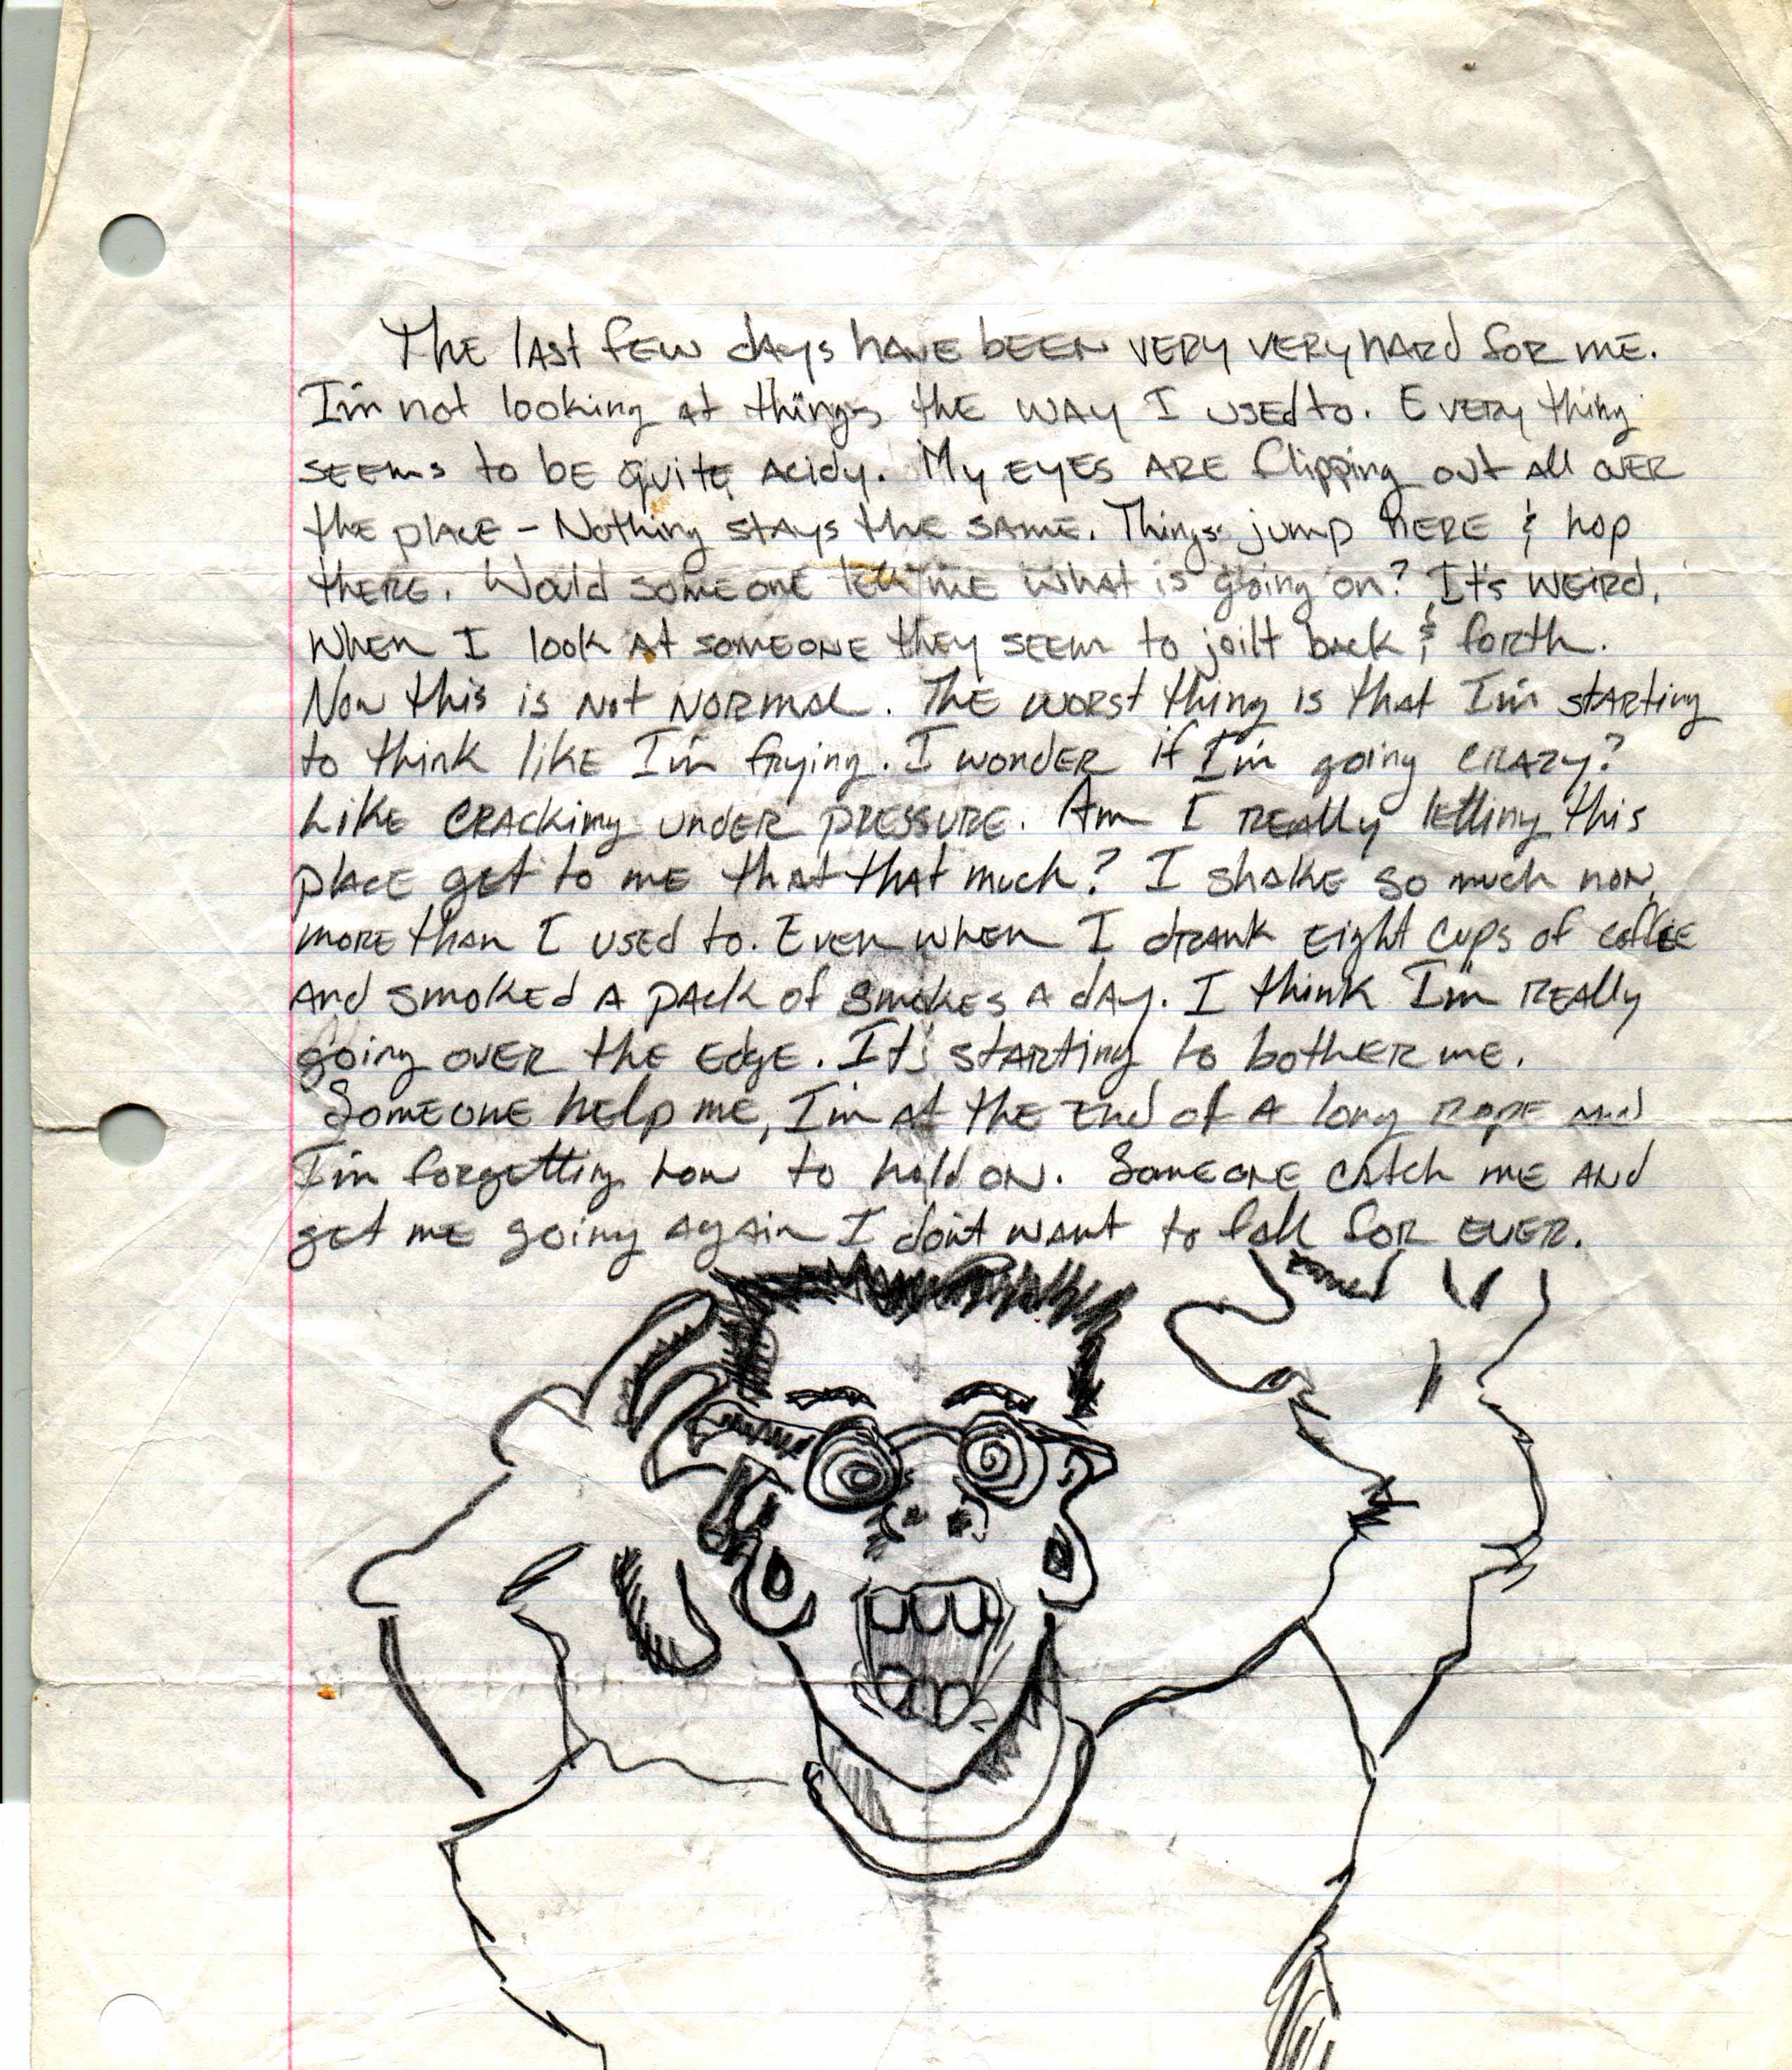 The last few days have been very very hard for me.
I'm not looking at things the way I used to. Everything
seems to be quite acidy. My eyes are flipping out all over
the place - Nothing stays the same. Things jump here & hop
there. Would someone tell me what is going on? It's weird,
when I look at someone they seem to joilt back & forth.
Now this is not normal. The worst thing is that I'm starting
to think like I'm frying. I wonder if I'm going crazy?
Like cracking under pressure. Am I really letting this
place get to me that that much? I shake so much now,
more than I used to. Even when I drank eight cups of coffee
and smoked a pack of smokes a day. I think I'm really
going over the edge. It's starting to bother me.
Someone help me, I'm at the end of a long rope and
I'm forgetting how to hold on. Someone catch me and
get me going again I don't want to fall for ever.